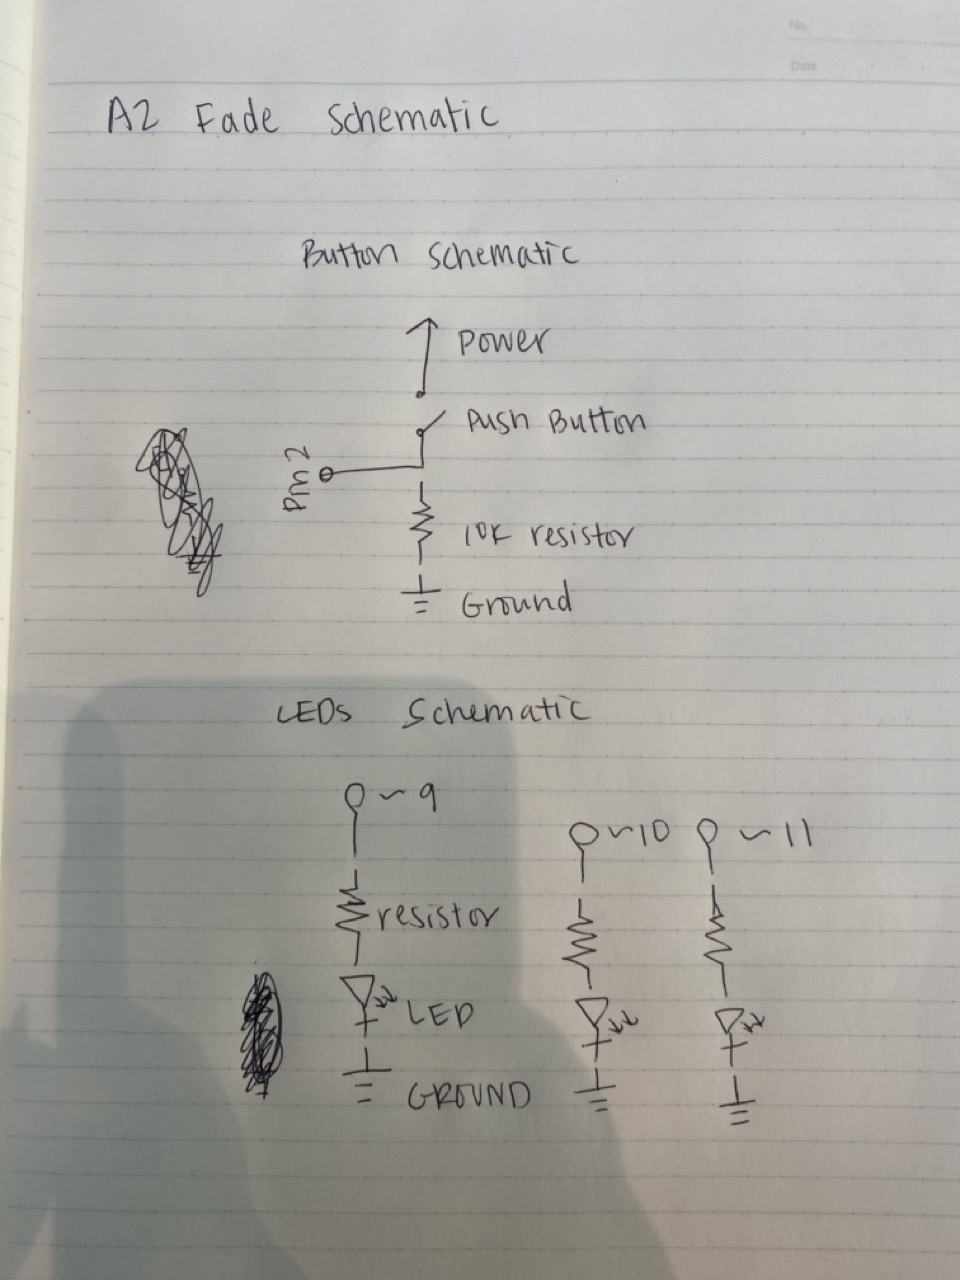 No.
Date
A2 Fade Schematic
Button Schematic
Power
Push Button
Pin 2
10K resistor
Ground
LEDs Schematic
~9
~10
~11
resistor
LED
GROUND